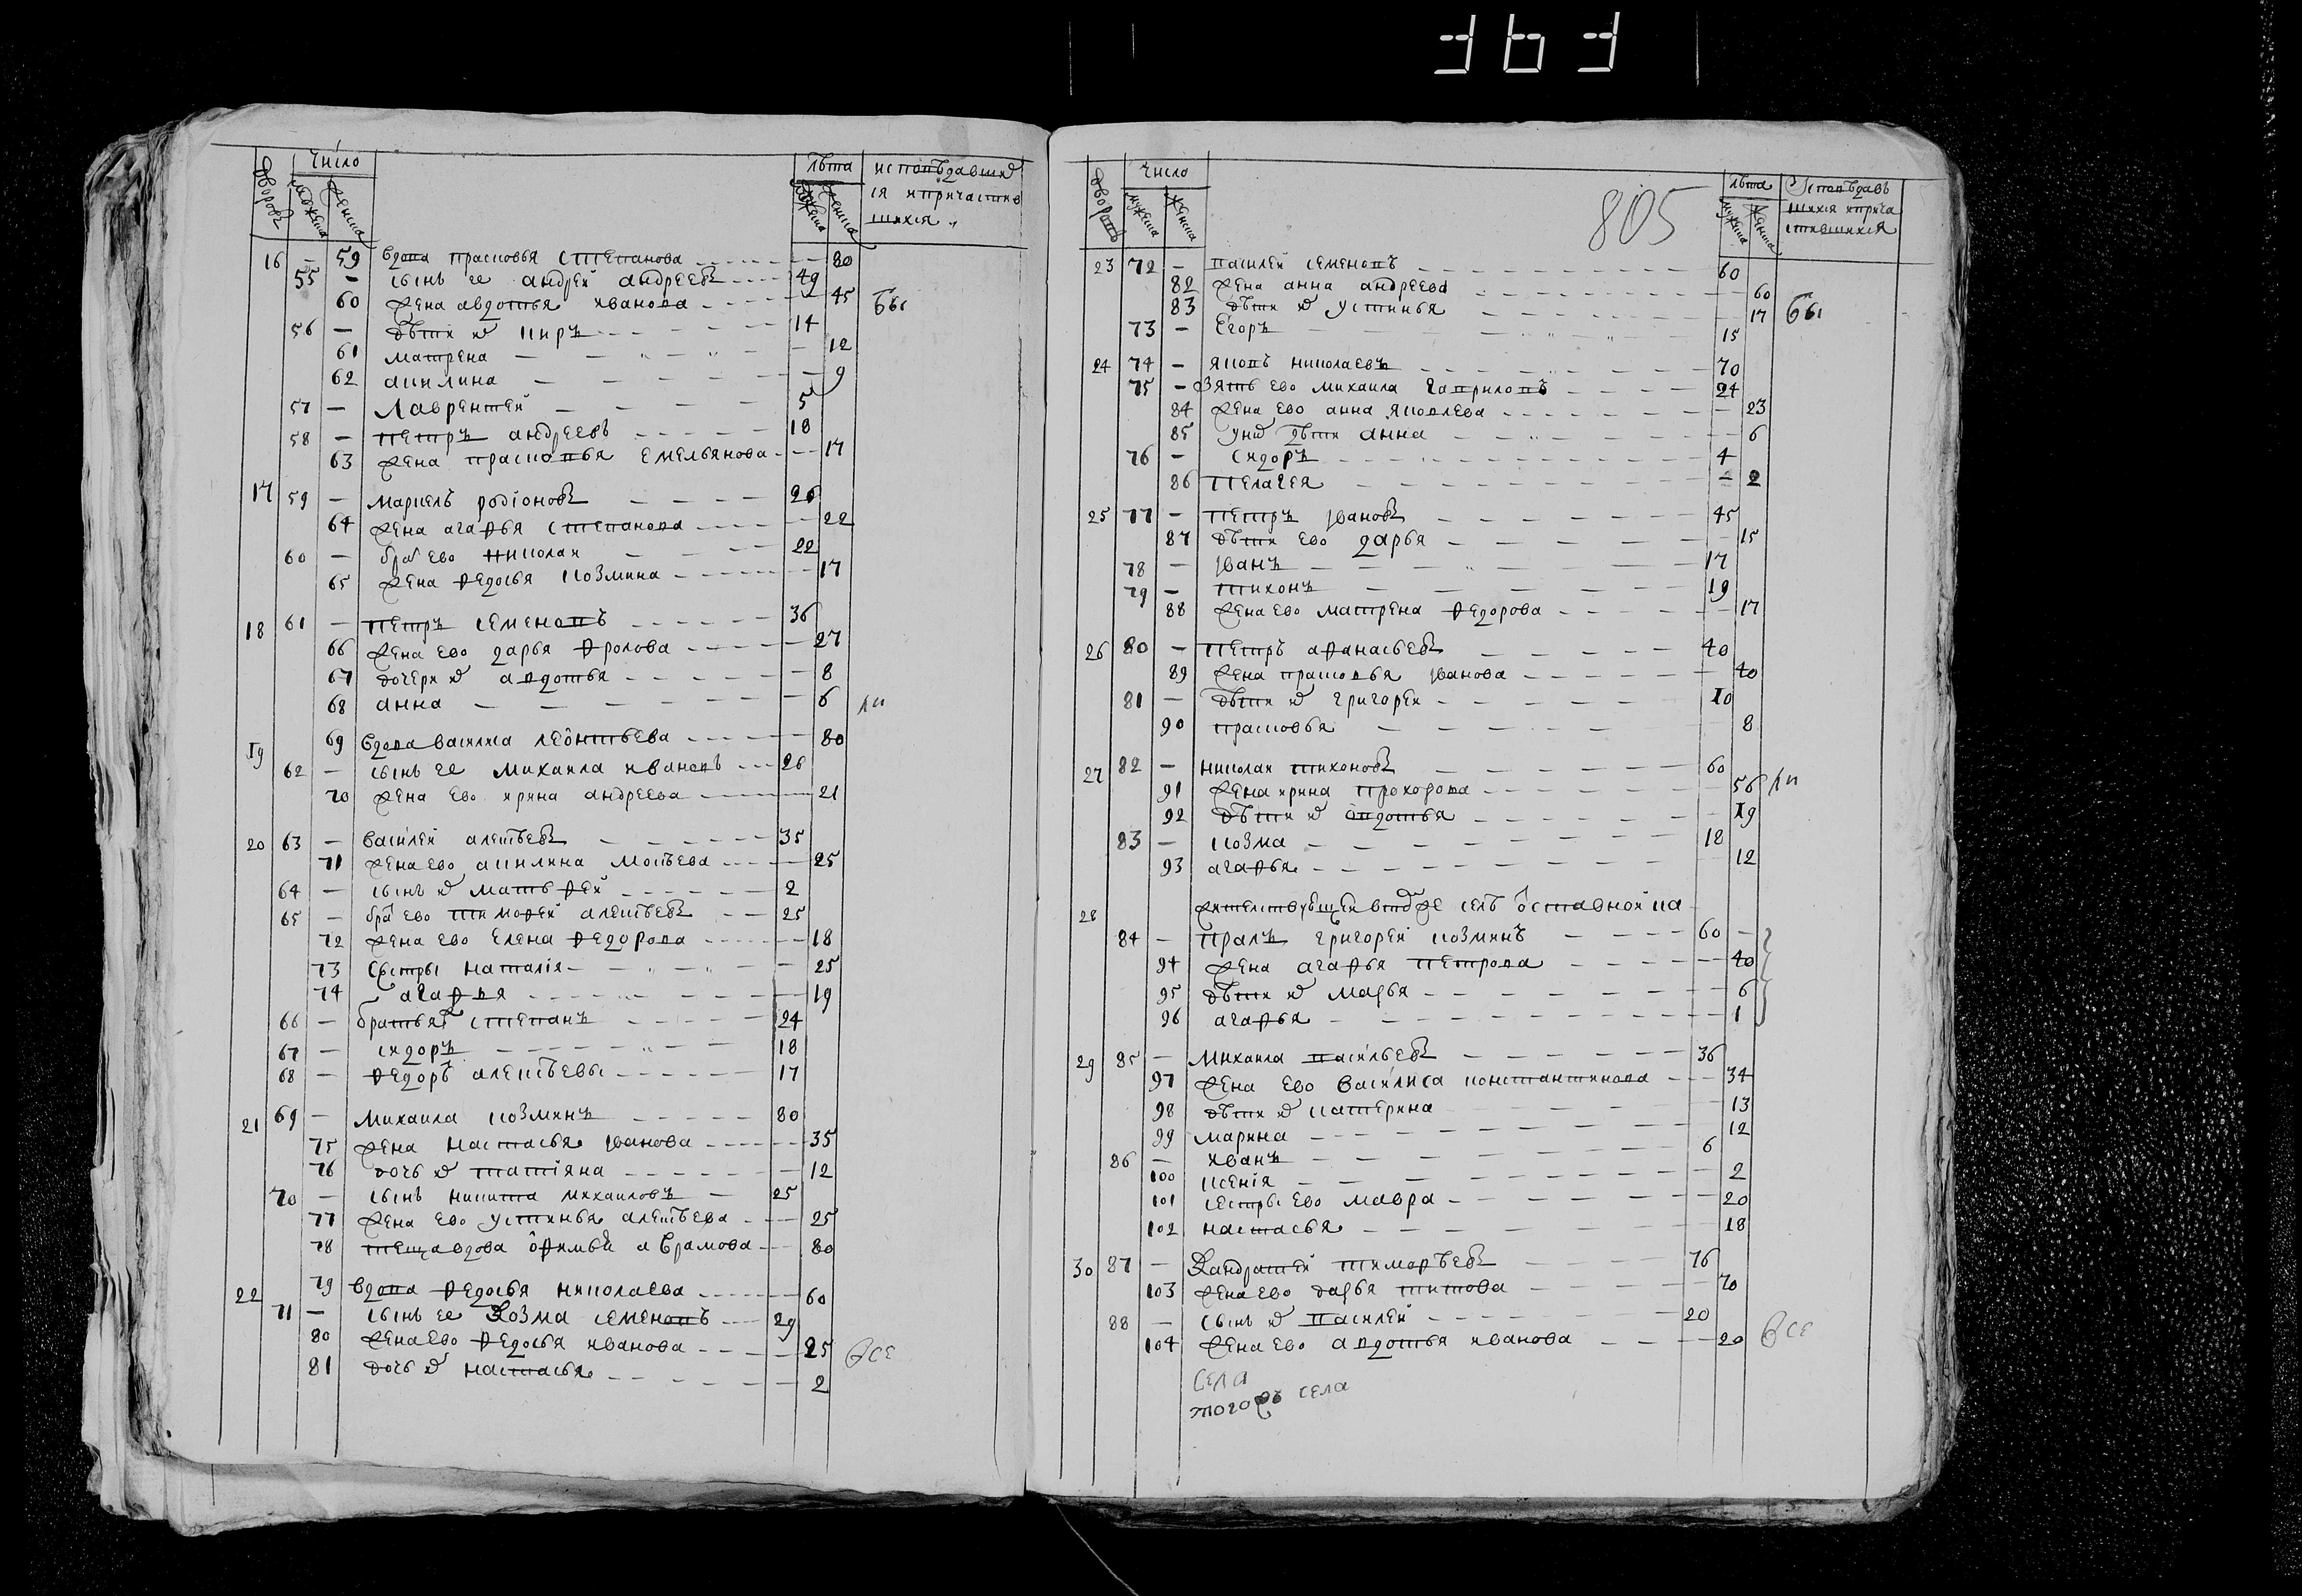 363
число
лѣта исповѣдавши
дворовъ мужеска женска мужеска женска
ся и причастив
шихся
16 – 59 вдова прасковья степанова 80
55 – сынъ ее андрей андреевъ 49
60 жена авдотья иванова 45 бы
56 – дѣти их киръ 14
61 матрена 12
62 акилина 9
57 – лаврентей 5
58 – петръ андреевъ 18
63 жена прасковья емельянова 17
17 59 – маркелъ родіоновъ 26
64 жена агафья степанова 22
60 – брат ево николаи 22
65 жена федосья козмина 17
18 61 – петръ семеновъ 36
66 жена ево дарья фролова 27
67 дочери их авдотья 8
68 анна 6
19 69 вдова василиса леонтьева 80
62 – сынъ ее михаила ивановъ 26
70 жена ево ирина андреева 21
20 63 – василей алексѣевъ 35
71 жена ево акилина мокѣева 25
64 – сынъ их матѣфей 2
65 – брат ево тимофей алексѣевъ 25
72 жена ево елена федорова 18
73 сестры наталія 25
74 агафья 19
66 – братья степанъ 24
67 – сидоръ 18
68 – федоръ алексѣевы 17
21 69 – михаила козминъ 80
75 жена настасья іванова 35
76 дочь их татіяна 12
70 – сынъ никита михаиловъ 25
77 жена ево устинья алексѣева 25
78 теща вдова офимья аврамова 80
22 79 вдова федосья николаева 60
71 – сынъ ее козма семеновъ 29
80 жена ево федосья иванова 25 все
81 дочь их настасья 2
805
число
лѣта исповѣдав
мужеска женска мужеска женска
шихся и прича
стившихся
23 72 – василей семеновъ 60
82 жена анна андреева 60
83 дѣти их устинья 17 бы
73 – егоръ 15
24 74 – яковъ николаевъ 70
75 – зять ево михаила гавриловъ 24
84 жена ево анна яковлева 23
85 у них дѣти анна 6
76 – сидоръ 4
86 пелагея 2
25 77 – петръ івановъ 45
87 дѣти ево дарья 15
78 – іванъ 17
79 – тихонъ 19
88 жена ево матрена федорова 17
26 80 – петръ афанасьевъ 40
89 жена прасковья іванова 40
81 – дѣти их григореи 10
90 прасковья 8
27 82 – николаи тихоновъ 60
91 жена ирина прохорова 56
92 дѣти их овдотья 19
83 – козма 18
93 агафья 12
28 жителствующей в том же селѣ оставной ка
84 – пралъ григорей козминъ 60 –
94 жена агафья петрова 40
95 дѣти их марья 6
96 агафья 1
29 85 – михаила васильевъ 36
97 жена ево василиса константинова 34
98 дѣти их катерина 13
99 марина 12
86 – иванъ 6
100 ксенія 2
101 сестры ево мавра 20
102 настасья 18
30 87 – кандратей тимофѣевъ 76
103 жена ево дарья титова 70
88 – сынъ их василей 20
104 жена ево авдотья иванова 20 все
села
тогожъ села